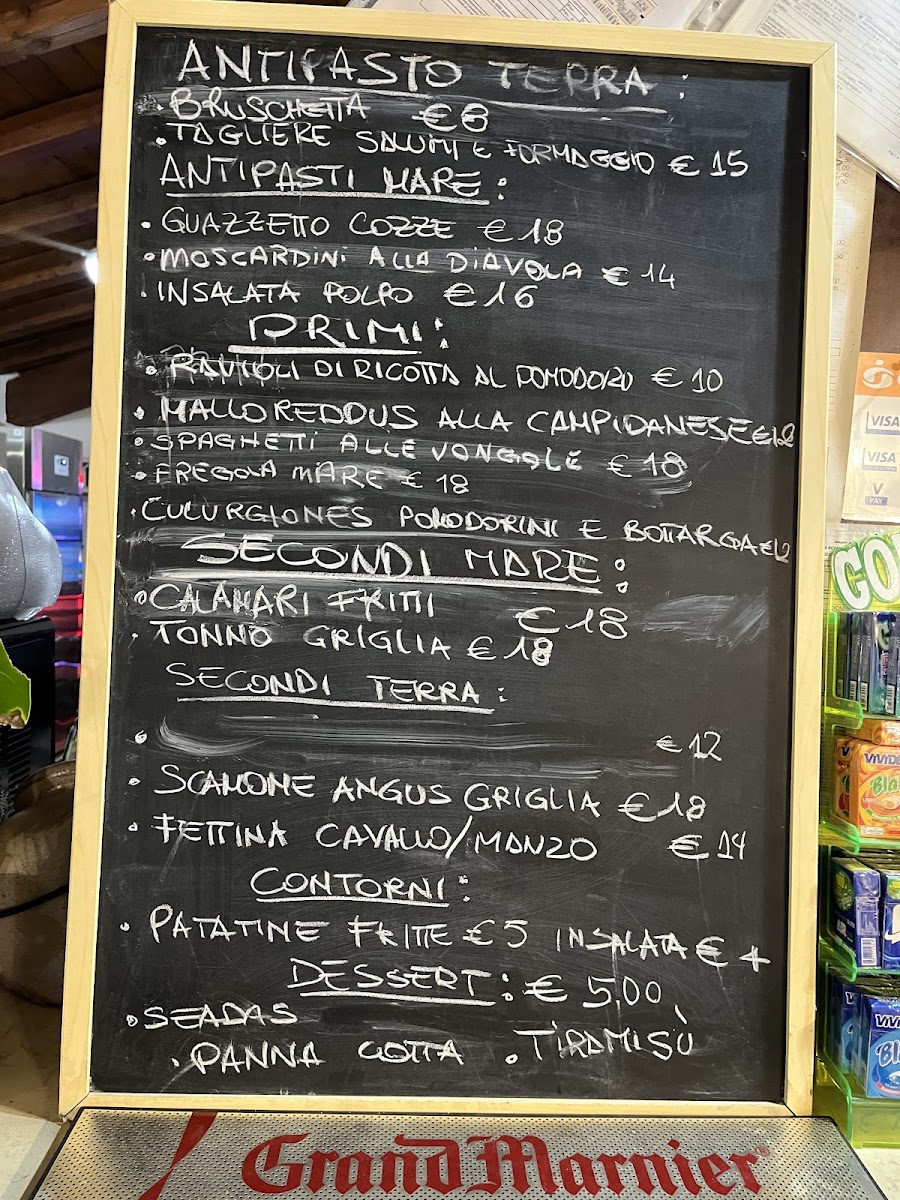 ANTIPASTO TERRA:
• BRUSCHETTA €8
• TAGLIERE SALUMI E FORMAGGIO € 15
ANTIPASTI MARE:
• GUAZZETTO COZZE € 18
• MOSCARDINI ALLA DIAVOLA € 14
• INSALATA POLPO € 16
PRIMI:
• RAVIOLI DI RICOTTA AL POMODORO € 10
• MALLOREDDUS ALLA CAMPIDANESE €12
• SPAGHETTI ALLE VONGOLE € 18
• FREGOLA MARE € 18
• CULURGIONES POMODORINI E BOTTARGA €12
SECONDI MARE:
• CALAMARI FRITTI € 18
• TONNO GRIGLIA € 18
SECONDI TERRA:
• € 12
• SCAMONE ANGUS GRIGLIA € 18
• FETTINA CAVALLO/MANZO € 14
CONTORNI:
• PATATINE FRITTE € 5 INSALATA € 4
DESSERT: € 5,00
• SEADAS
• PANNA COTTA • TIRAMISÙ
Grand Marnier
VISA
VISA
V PAY
GO
VIVIDE
Bla
VIVI
Bl